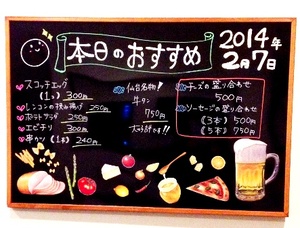 本日のおすすめ
2014年
2月7日
スコッチエッグ
(1コ) 300円
レンコンの挟み揚げ 250円
ポテトサラダ 250円
エビチリ 300円
串カツ(1本) 240円
仙台名物!
牛タン
750円
チーズの盛り合わせ
500円
ソーセージの盛り合わせ
(3本) 500円
(5本) 750円